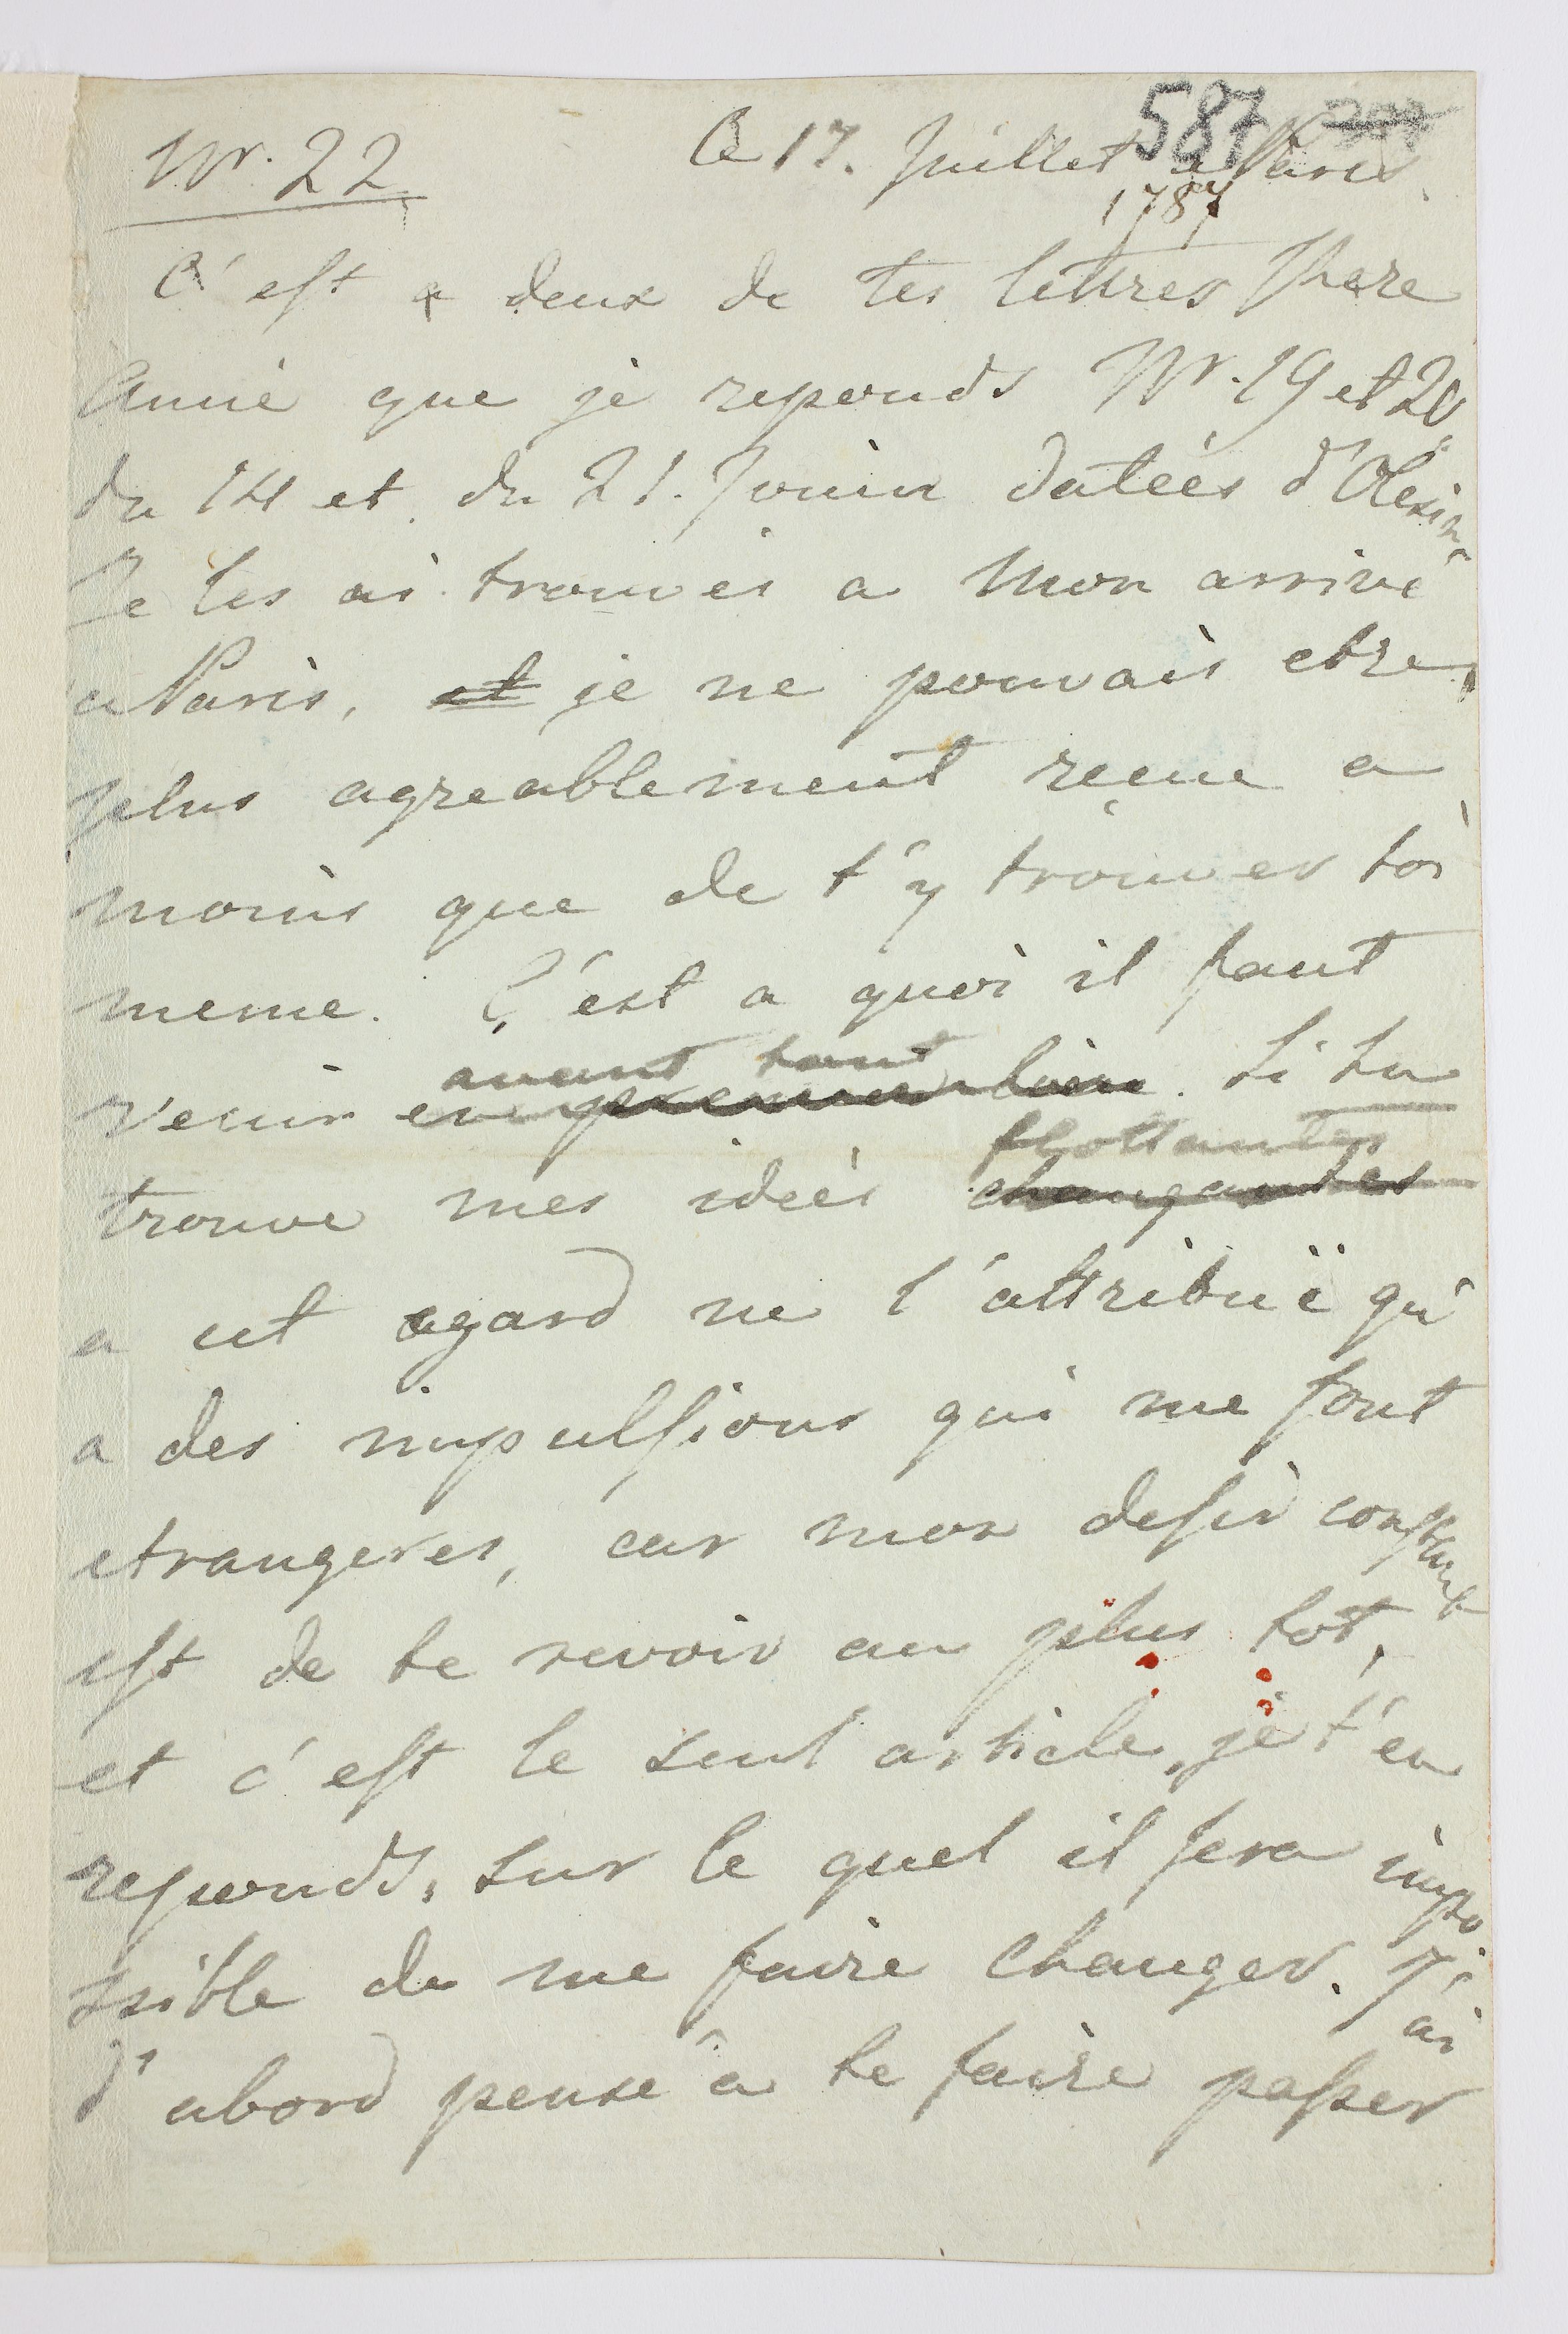 587
Nr. 22
Ce 17. Juillet a Paris
1787
C'est a deux de tes lettres chere
Amie que je reponds Nr. 19 et 20
du 14 et du 21. Jouin datées d'Olesin.
Je les ai trouvés a mon arrivé
a Paris, et je ne pouvais etre,
plus agreablement reçue a
moins que de t'y trouver toi
meme. C'est a quoi il faut
avant tout
venir en premier lieu. Si tu
flottantes
trouve mes idées changantes
a cet egard ne l'attribuë qu'
a des impulsions qui me sont
etrangeres, car mon desir constant
est de te revoir au plus tot,
et c'est le seul article, je t'en
reponds, sur le quel il sera impo
ssible de me faire changer. J'ai
d'abord pensé a te faire passer